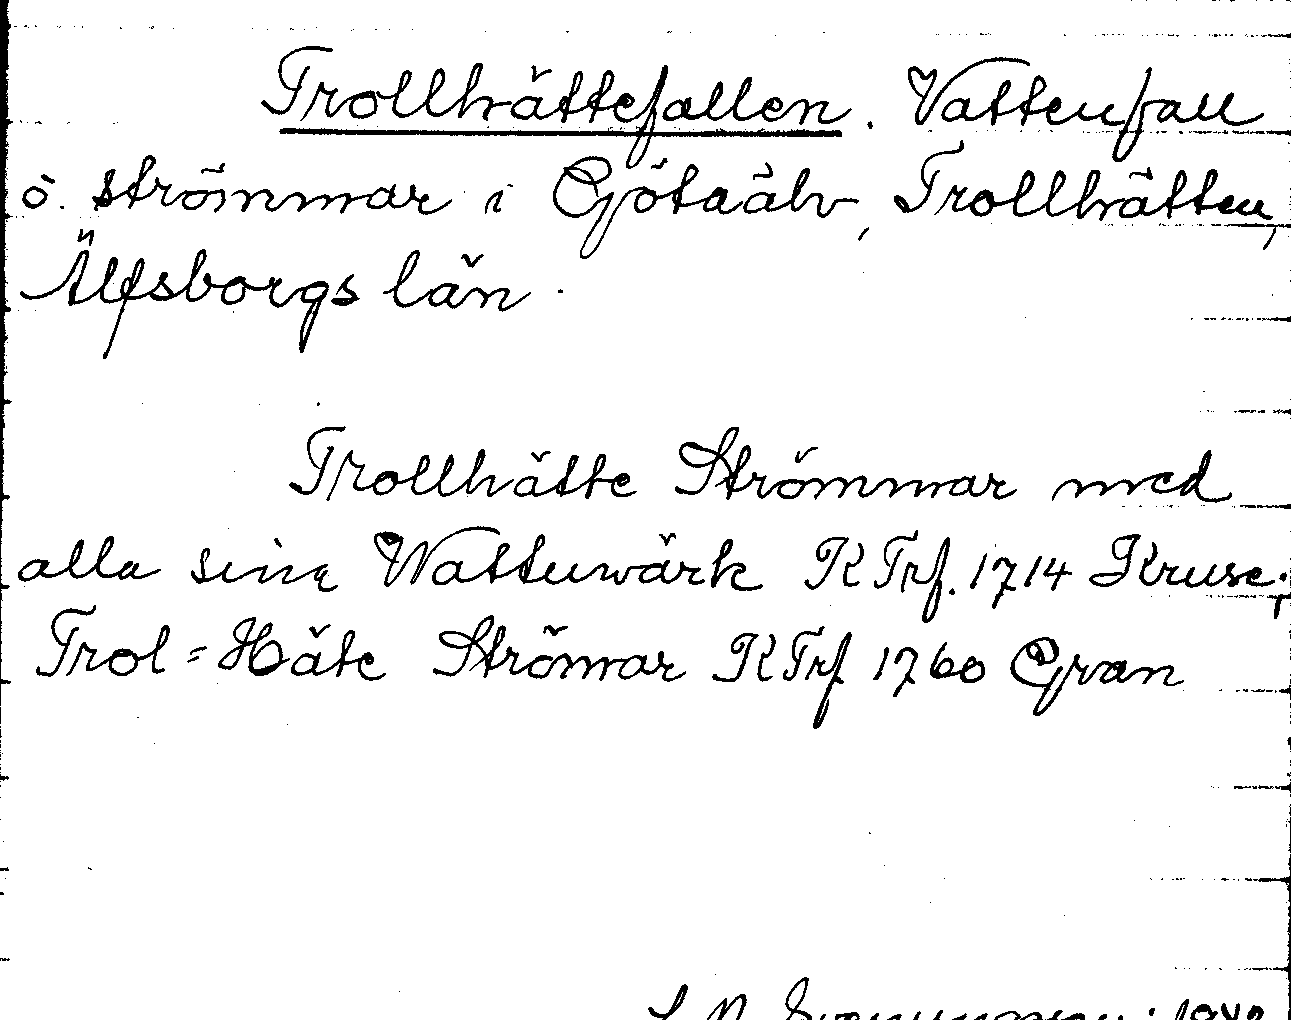 Trollhättefallen. Vattenfall
o. strömmar i Götaälv, Trollhätten,
Älfsborgs län.
Trollhätte Strömmar med
alla sina Wattuwärk KTrf. 1714 Kruse;
Trol=Häte Strömar KTrf 1760 Gran